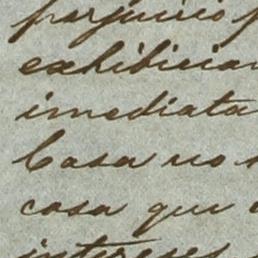 perjuicio p
exhibician
imediata
Casa no s
cosa que
intereses